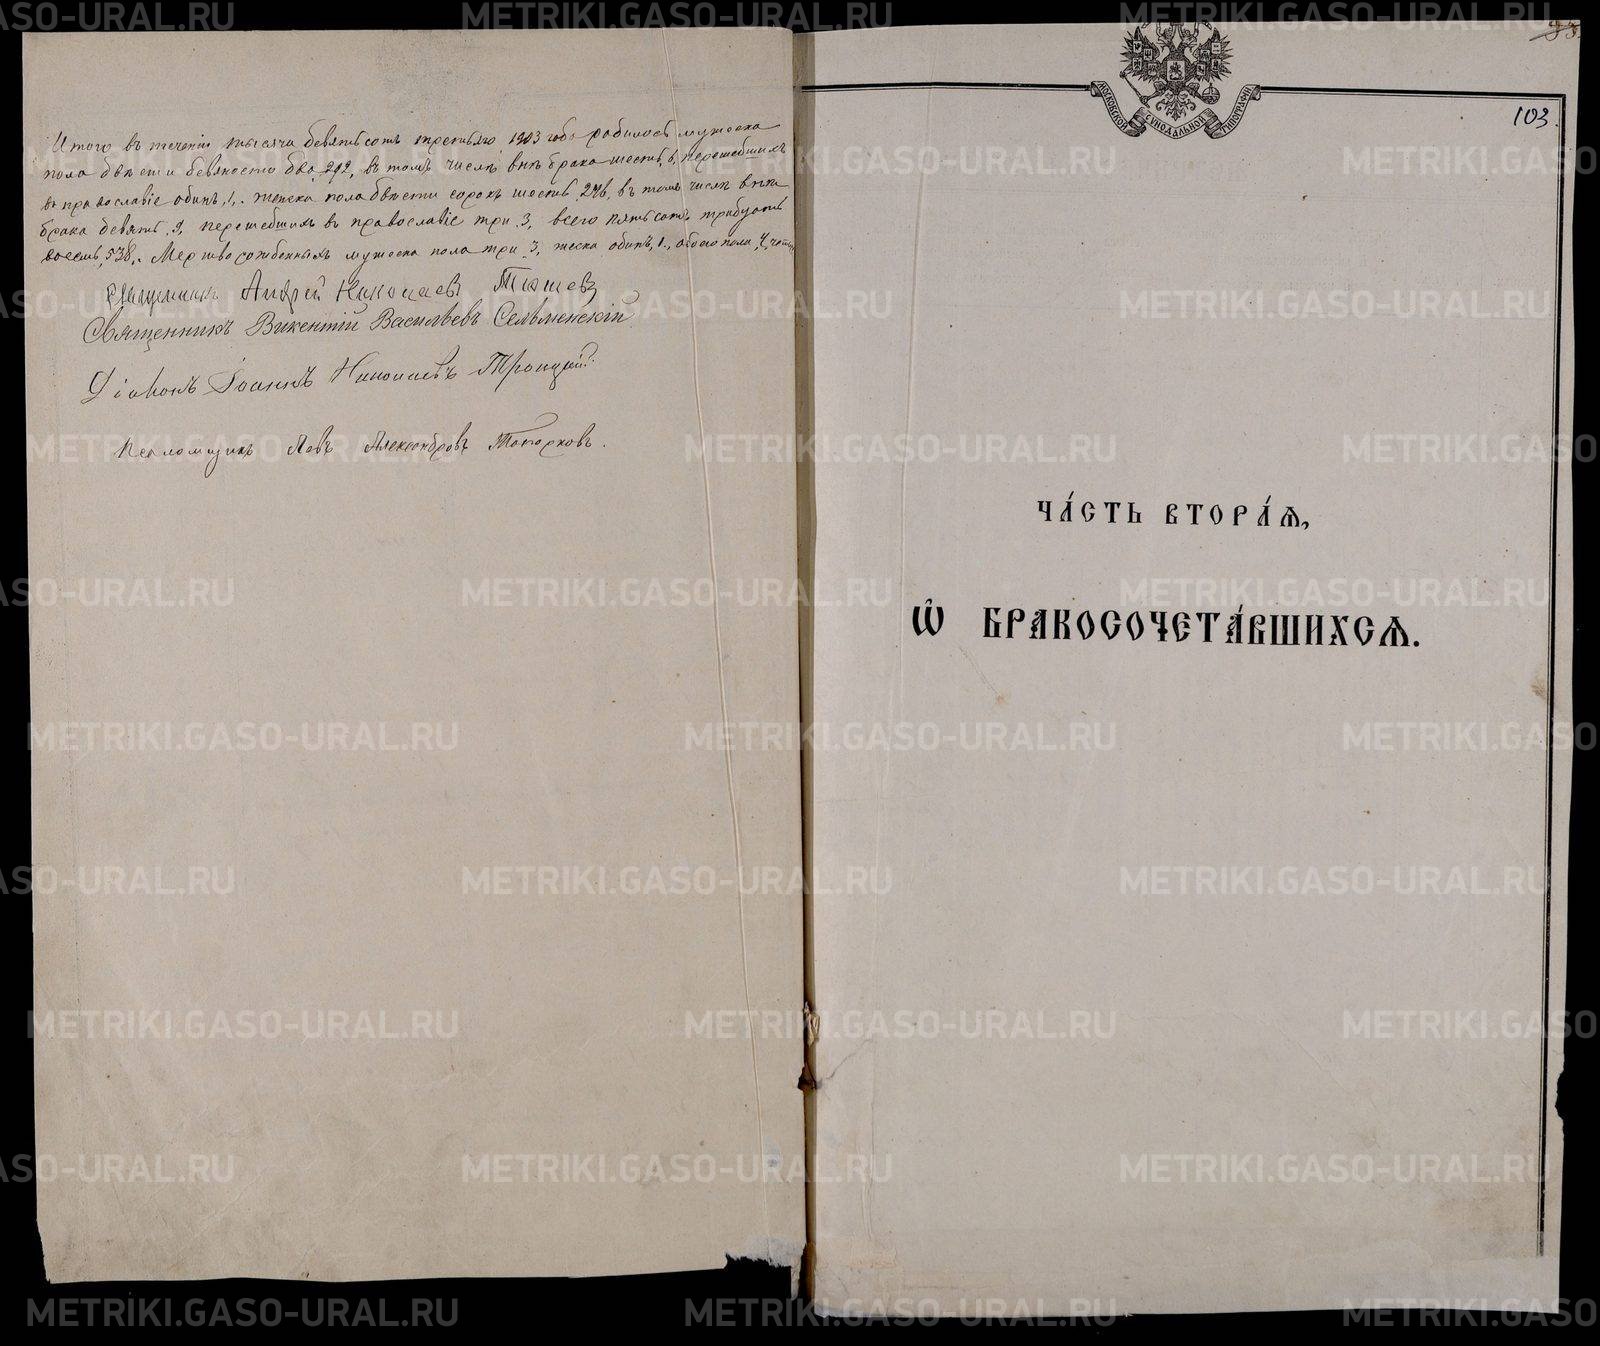 Итого въ теченіи тысяча девятьсотъ третьяго 1903 года родилось мужеска
пола двѣсти девяносто два, 292, въ томъ числѣ внѣ брака шесть, 6, перешедшихъ
въ православіе одинъ, 1,. женска пола двѣсти сорокъ шесть, 246, въ томъ числѣ внѣ
брака девять, 9, перешедшихъ въ православіе три, 3, всего пятьсотъ тридцать
восемь, 538,. Мертворожденныхъ мужеска пола три, 3, женска одинъ, 1., обоего пола, 4, четыре
Священникъ Андрей Николаевъ
Священникъ Викентій Васильевъ Сельменскій
Діаконъ Іоаннъ Николаевъ Троицкій.
Псаломщикъ Левъ Александровъ Топорковъ.
МОСКОВСКОЙ СѴНОДАЛЬНОЙ ТИПОГРАФІИ
103.
ЧА́СТЬ ВТОРА́Ѧ,
Ѡ҆ БРАКОСОЧЕТА́ВШИХСѦ.
METRIKI.GASO-URAL.RU